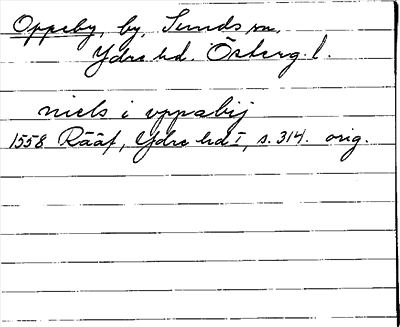 Oppeby, by, Sunds sn.
Ydre hd. Österg. l.
niels i oppabij
1558 Rääf, Ydre hd I, s. 314. orig.